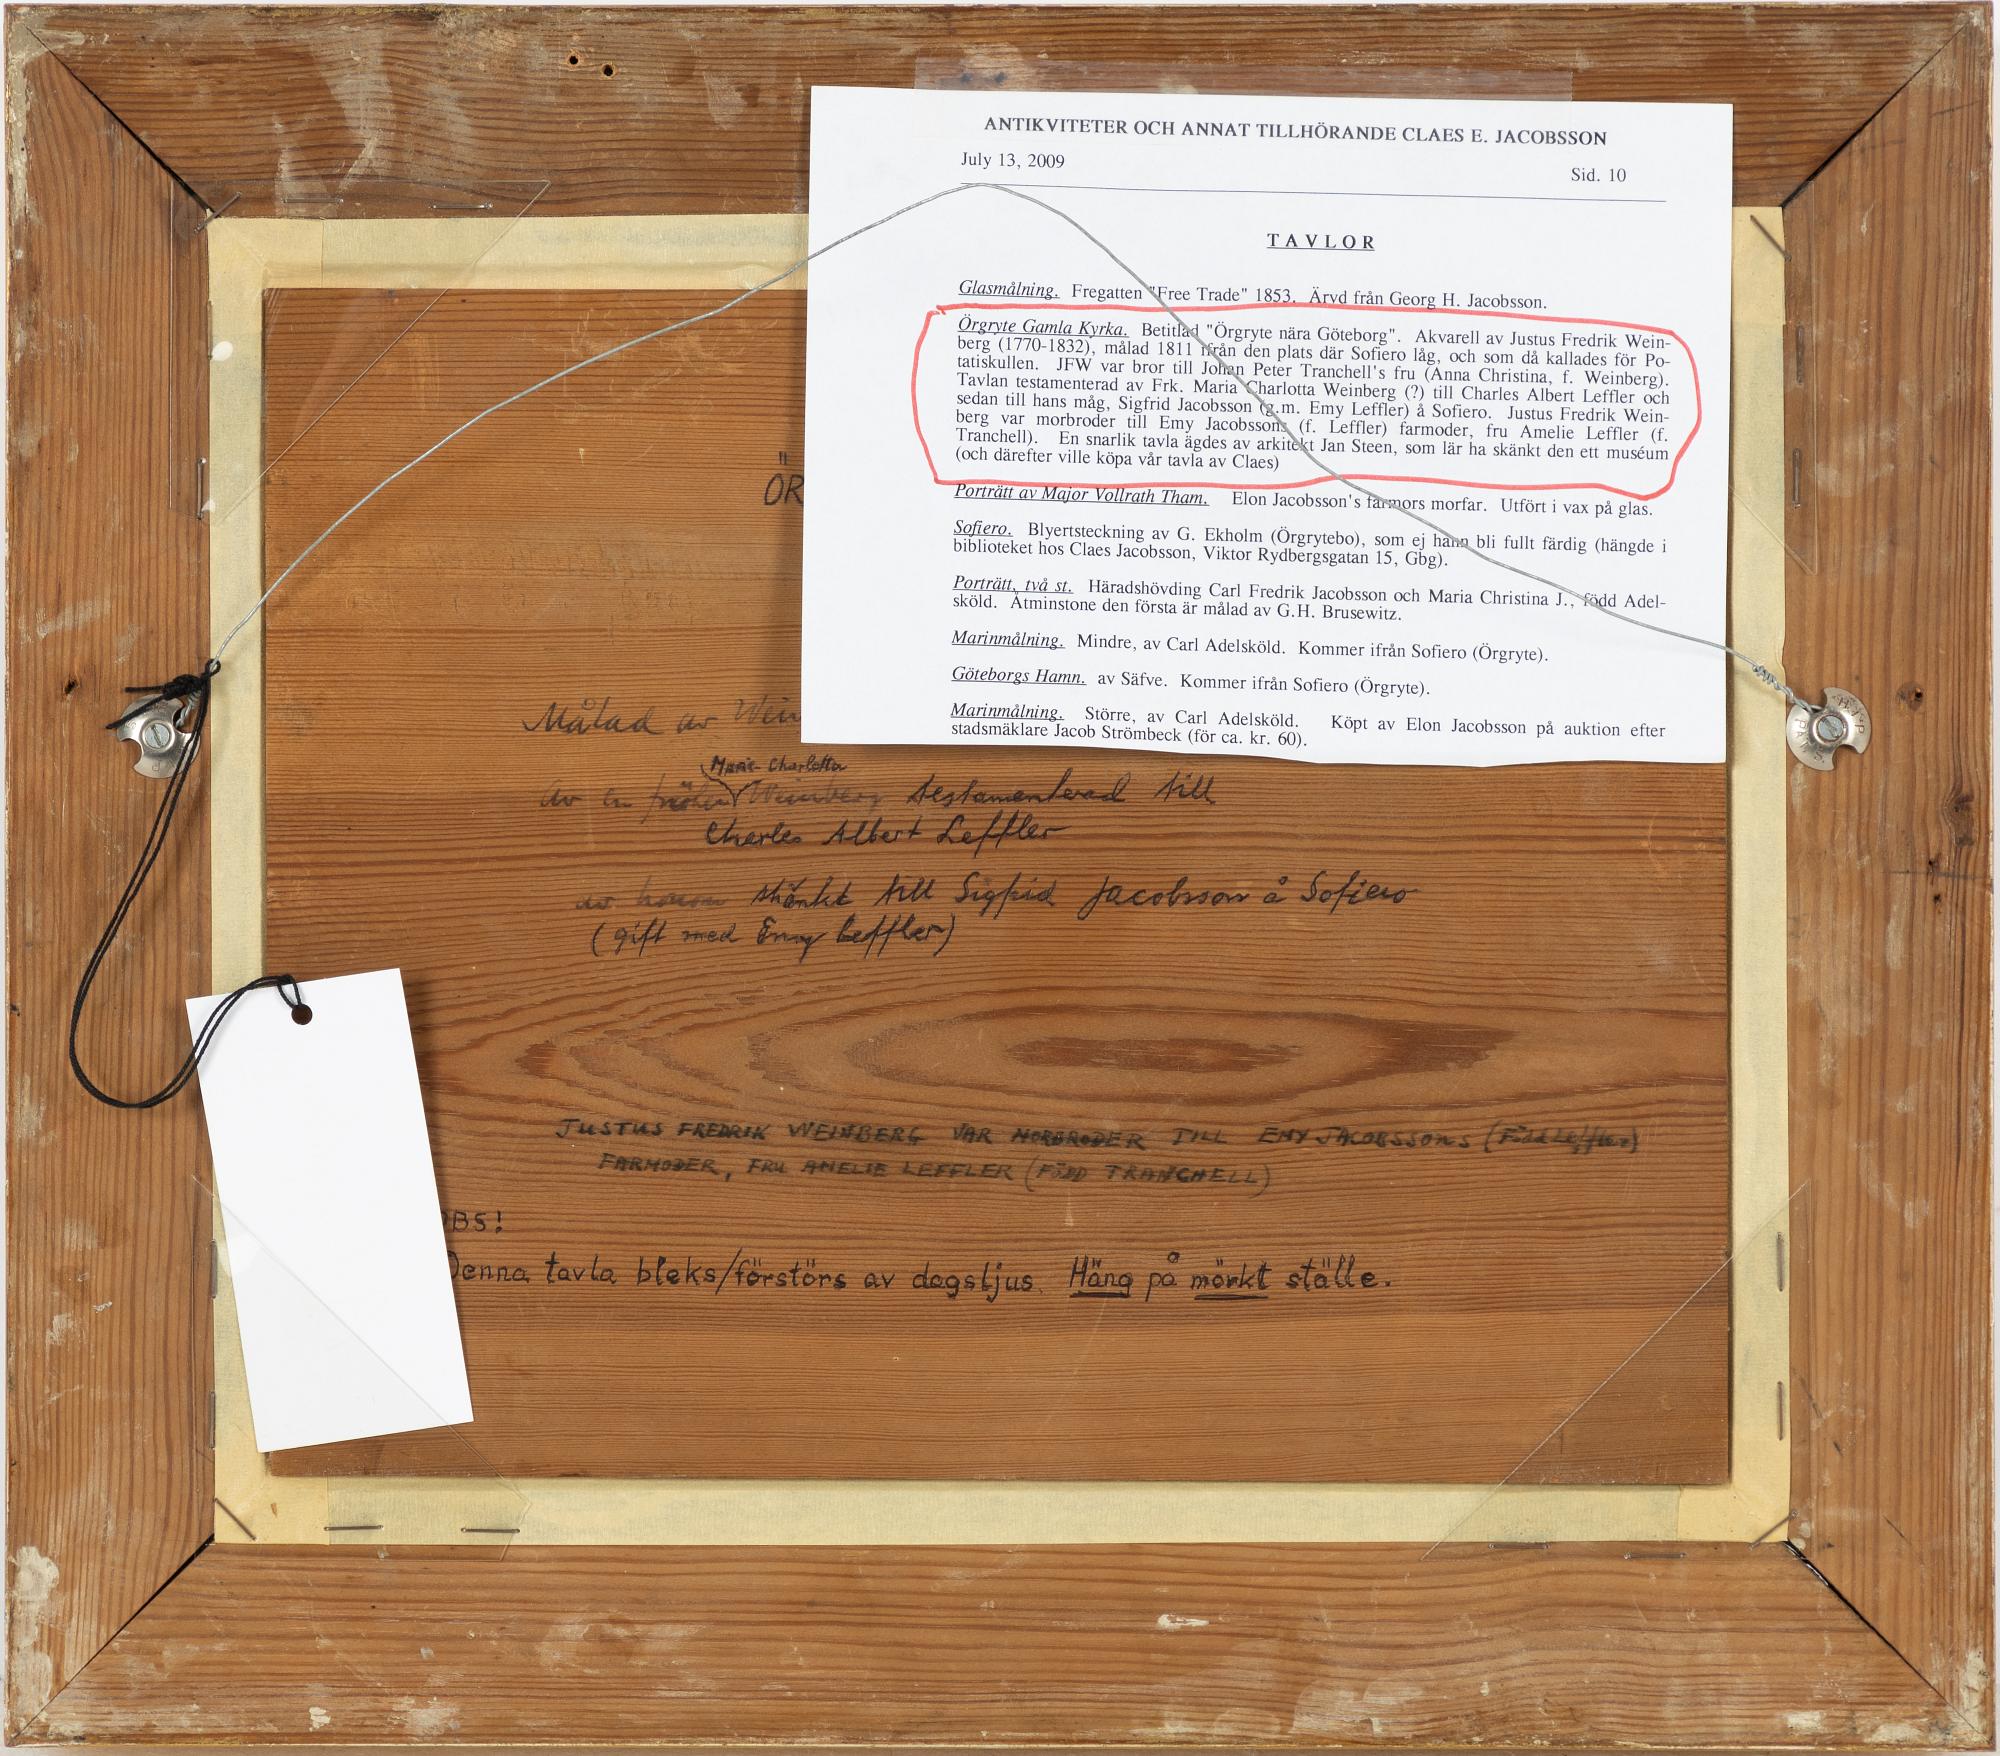 ANTIKVITETER OCH ANNAT TILLHÖRANDE CLAES E. JACOBSSON
July 13, 2009
Sid. 10
TAVLOR
Glasmålning. Fregatten "Free Trade" 1853. Ärvd från Georg H. Jacobsson.
Örgryte Gamla Kyrka. Betitlad "Örgryte nära Göteborg". Akvarell av Justus Fredrik Wein-
berg (1770-1832), målad 1811 ifrån den plats där Sofiero låg, och som då kallades för Po-
tatiskullen. JFW var bror till Johan Peter Tranchell's fru (Anna Christina, f. Weinberg).
Tavlan testamenterad av Frk. Maria Charlotta Weinberg (?) till Charles Albert Leffler och
sedan till hans måg, Sigfrid Jacobsson (g.m. Emy Leffler) å Sofiero. Justus Fredrik Wein-
berg var morbroder till Emy Jacobssons (f. Leffler) farmoder, fru Amelie Leffler (f.
Tranchell). En snarlik tavla ägdes av arkitekt Jan Steen, som lär ha skänkt den ett muséum
(och därefter ville köpa vår tavla av Claes)
Porträtt av Major Vollrath Tham. Elon Jacobsson's farmors morfar. Utfört i vax på glas.
Sofiero. Blyertsteckning av G. Ekholm (Örgrytebo), som ej hann bli fullt färdig (hängde i
biblioteket hos Claes Jacobsson, Viktor Rydbergsgatan 15, Gbg).
Porträtt, två st. Häradshövding Carl Fredrik Jacobsson och Maria Christina J., född Adel-
sköld. Åtminstone den första är målad av G.H. Brusewitz.
Marinmålning. Mindre, av Carl Adelsköld. Kommer ifrån Sofiero (Örgryte).
Göteborgs Hamn. av Säfve. Kommer ifrån Sofiero (Örgryte).
Marinmålning. Större, av Carl Adelsköld. Köpt av Elon Jacobsson på auktion efter
stadsmäklare Jacob Strömbeck (för ca. kr. 60).
ÖR
Målad av Wein
Marie Charlotta
av en fröken Weinberg testamenterad till
Charles Albert Leffler
av honom skänkt till Sigfrid Jacobsson å Sofiero
(gift med Emy Leffler)
JUSTUS FREDRIK WEINBERG VAR MORBRODER TILL EMY JACOBSSONS (Född Leffler)
FARMODER, FRU AMELIE LEFFLER (FÖDD TRANCHELL)
OBS!
Denna tavla bleks/förstörs av dagsljus. Häng på mörkt ställe.